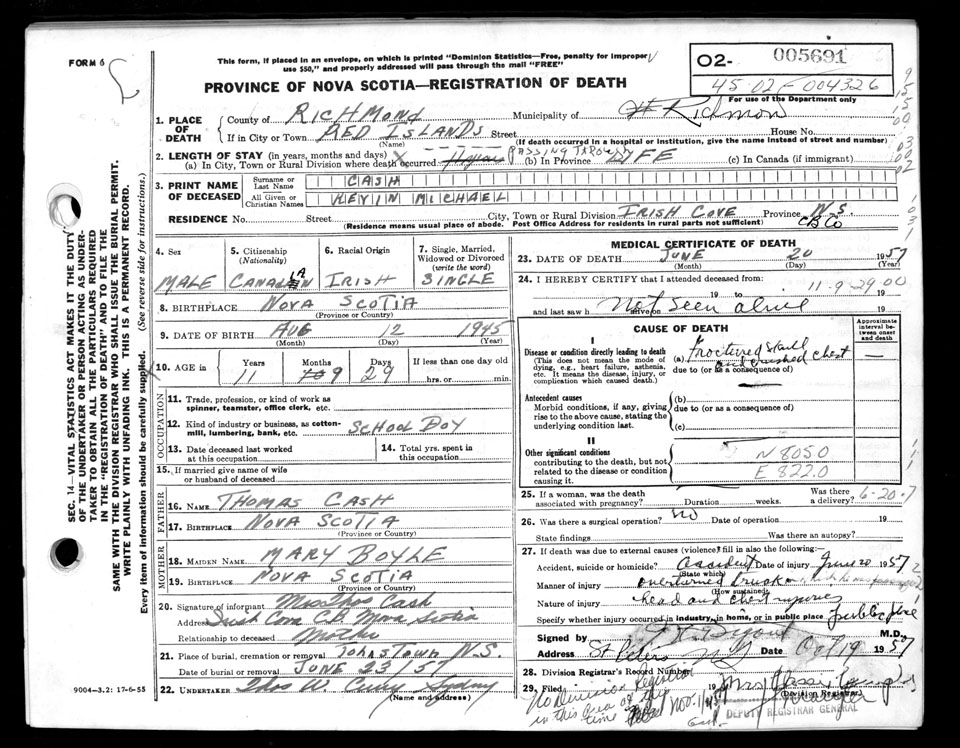 FORM 6
This form, if placed in an envelope, on which is printed "Dominion Statistics—Free, penalty for improper
use $50," and properly addressed will pass through the mail "FREE"
PROVINCE OF NOVA SCOTIA—REGISTRATION OF DEATH
02- 005691
45-02-004326
For use of the Department only
1. PLACE OF DEATH
County of RICHMOND Municipality of Richmond
If in City or Town RED ISLANDS Street House No.
(Name) (If death occurred in a hospital or institution, give the name instead of street and number)
2. LENGTH OF STAY (in years, months and days) PASSING THROUGH
(a) In City, Town or Rural Division where death occurred 11 years (b) In Province LIFE (c) In Canada (if immigrant)
3. PRINT NAME OF DECEASED
Surname or Last Name CASH
All Given or Christian Names KEVIN MICHAEL
RESIDENCE No. Street City, Town or Rural Division IRISH COVE Province N.S.
(Residence means usual place of abode. Post Office Address for residents in rural parts not sufficient) CB Co
4. Sex MALE
5. Citizenship (Nationality) CANADIAN
6. Racial Origin IRISH
7. Single, Married, Widowed or Divorced (write the word) SINGLE
8. BIRTHPLACE NOVA SCOTIA
(Province or Country)
9. DATE OF BIRTH AUG 12 1945
(Month) (Day) (Year)
10. AGE in Years Months Days If less than one day old
11 9 29 hrs. or min.
OCCUPATION
11. Trade, profession, or kind of work as
spinner, teamster, office clerk, etc.
12. Kind of industry or business, as cotton-
mill, lumbering, bank, etc. SCHOOL BOY
13. Date deceased last worked at this occupation
14. Total yrs. spent in this occupation
15. If married give name of wife
or husband of deceased
FATHER
16. NAME THOMAS CASH
17. BIRTHPLACE NOVA SCOTIA
(Province or Country)
MOTHER
18. MAIDEN NAME MARY BOYLE
19. BIRTHPLACE NOVA SCOTIA
(Province or Country)
20. Signature of informant Mrs Thos Cash
Address Irish Cove C.B. Nova Scotia
Relationship to deceased Mother
21. Place of burial, cremation or removal JOHNSTOWN N.S.
Date of burial or removal JUNE 23 '57
22. UNDERTAKER Thos W. Sydney
(Name and address)
MEDICAL CERTIFICATE OF DEATH
23. DATE OF DEATH JUNE 20 1957
(Month) (Day) (Year)
24. I HEREBY CERTIFY that I attended deceased from:
19 to 11-9-29 00 19
and last saw h alive on Not seen alive 19
CAUSE OF DEATH
Approximate interval between onset and death
I
Disease or condition directly leading to death
(This does not mean the mode of dying, e.g., heart failure, asthenia, etc. It means the disease, injury, or complication which caused death.)
(a) Fractured skull and crushed chest —
due to (or as a consequence of)
Antecedent causes
Morbid conditions, if any, giving rise to the above cause, stating the underlying condition last.
(b)
due to (or as a consequence of)
(c)
II
Other significant conditions
contributing to the death, but not related to the disease or condition causing it.
N 8050
E 822.0
25. If a woman, was the death
associated with pregnancy? Duration weeks. Was there a delivery? 6-20-7
26. Was there a surgical operation? no Date of operation 19
State findings Was there an autopsy?
27. If death was due to external causes (violence) fill in also the following:—
Accident, suicide or homicide? accident Date of injury June 20 1957
(State which)
Manner of injury overturned truck
(How sustained)
Nature of injury head and chest injuries
Specify whether injury occurred in industry, in home, or in public place public place
Signed by M.D.
Address St Peters Date Oct 19 1957
28. Division Registrar's Record Number
29. Filed 19
(Division Registrar)
No Division Registrar
in this area at this
time Nov. 1
DEPUTY REGISTRAR GENERAL
SEC. 14—VITAL STATISTICS ACT MAKES IT THE DUTY
OF THE UNDERTAKER OR PERSON ACTING AS UNDER-
TAKER TO OBTAIN ALL THE PARTICULARS REQUIRED
IN THE "REGISTRATION OF DEATH" AND TO FILE THE
SAME WITH THE DIVISION REGISTRAR WHO SHALL ISSUE THE BURIAL PERMIT.
WRITE PLAINLY WITH UNFADING INK. THIS IS A PERMANENT RECORD.
Every item of information should be carefully supplied. (See reverse side for instructions.)
9004-3.2: 17-6-55